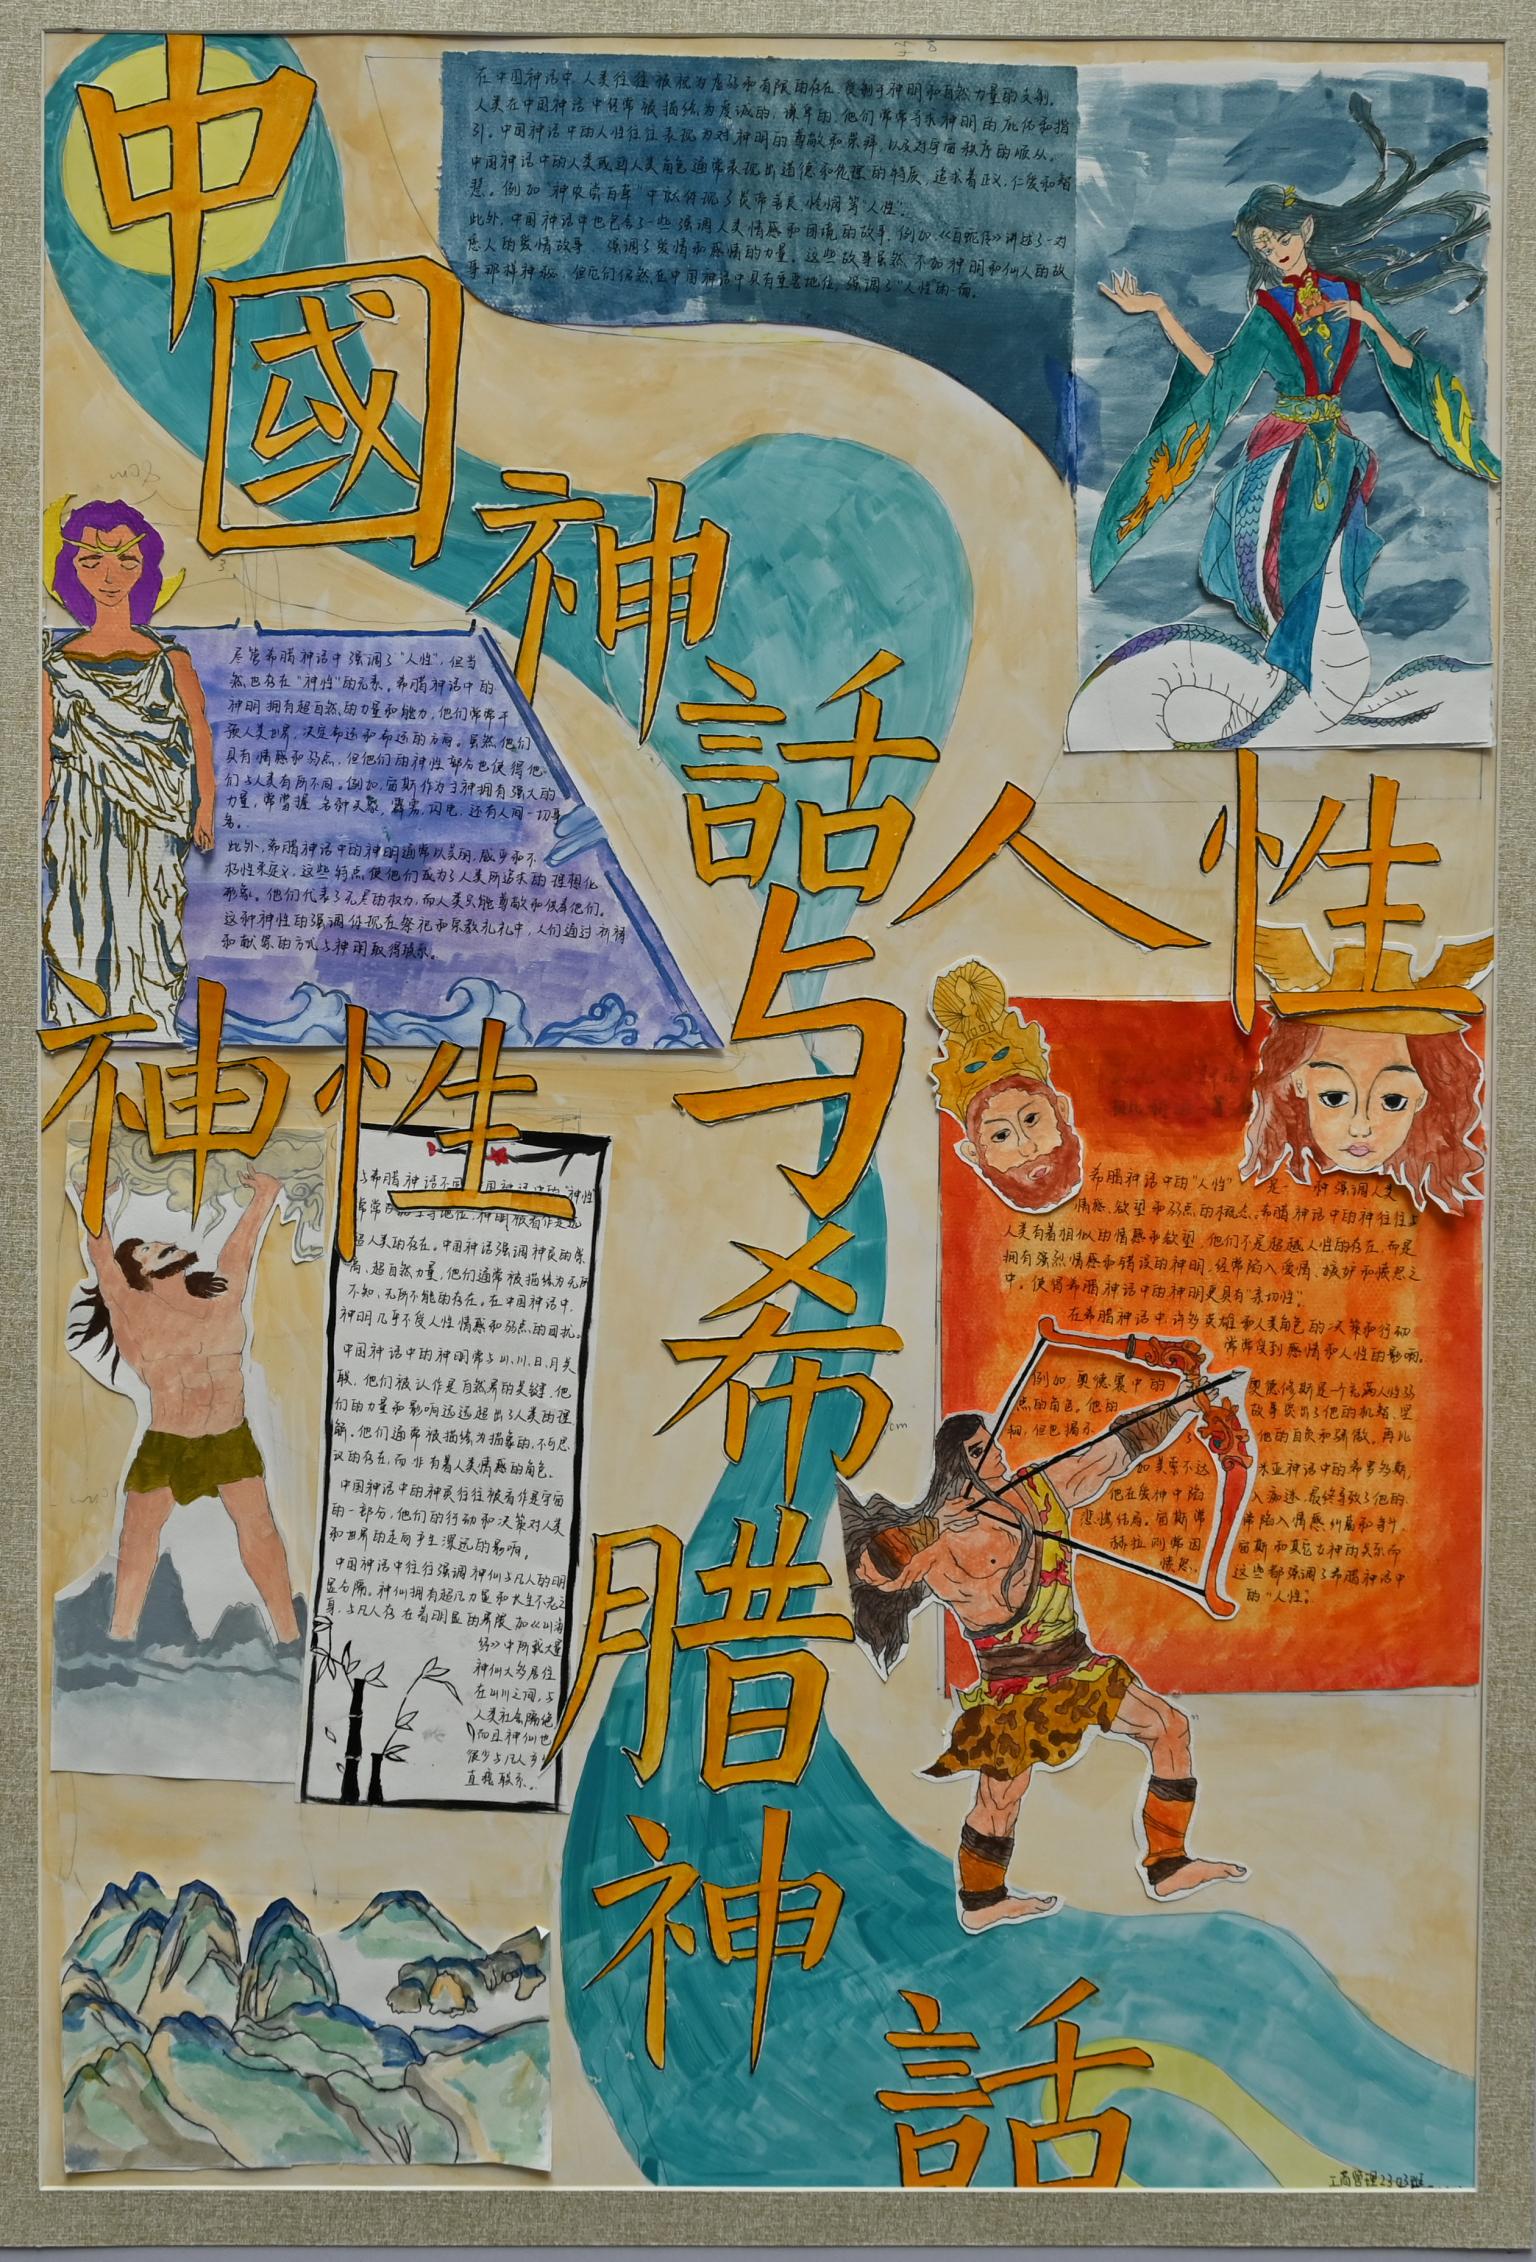 中國神話与希腊神話
人性
神性
在中国神话中,人类往往被视为虚弱和有限的存在,受制于神明和自然力量的支制。
人类在中国神话中经常被描绘为虔诚的,谦卑的,他们常常寻求神明的庇佑和指
引。中国神话中的人性往往表现为对神明的尊敬和崇拜,以及对宇宙秩序的顺从。
中国神话中的人类或因人类角色通常表现出道德和伦理的特质,追求着正义,仁爱和智
慧。例如"神农尝百草"中就体现了炎帝善良、怜悯等"人性"。
此外,中国神话中也包含了一些强调人类情感和困境的故事,例如《白蛇传》讲述了一对
恋人的爱情故事,强调了爱情和感情的力量。这些故事虽然不如神明和仙人的故
事那样神秘,但它们仍然在中国神话中具有重要地位,强调了"人性"的一面。
尽管希腊神话中强调了"人性",但当
然也存在"神性"的元素。希腊神话中的
神明拥有超自然的力量和能力,他们常常干
预人类世界,决定命运和命运的方向。虽然他们
具有情感和弱点,但他们的神性部分也使得他
们与人类有所不同。例如,宙斯作为主神拥有强大的
力量,常掌握各种天象,霹雳,闪电,还有人间一切事
务。
此外,希腊神话中的神明通常以美丽,威严和不
朽性来定义,这些特点使他们成为了人类所追求的理想化
形象。他们代表了无尽的权力,而人类只能尊敬和侍奉他们。
这种神性的强调体现在祭祀和宗教礼礼中,人们通过祈祷
和献祭的方式与神明取得联系。
与希腊神话不同
超人类的存在。中国神话强调神灵的崇
高、超自然力量,他们通常被描绘为无所
不知、无所不能的存在。在中国神话中,
神明几乎不受人性情感和弱点的困扰。
中国神话中的神明常与山、川、日、月关
联,他们被认作是自然界的关键,他
们的力量和影响远远超出了人类的理
解。他们通常被描绘为抽象的,不可思
议的存在,而非有着人类情感的角色。
中国神话中的神灵往往被看作是宇宙
的一部分,他们的行动和决策对人类
和世界的走向产生深远的影响。
中国神话中往往强调神仙与凡人的明
显分隔。神仙拥有超凡力量和长生不老之
身,与凡人存在着明显的界限,如《山海
经》中所载大量
神仙大多居住
在山川之间,与
人类社会隔绝
而且神仙也
很少与凡人产生
直接联系。
希腊神话中的"人性"是一种强调人类
情感、欲望和弱点的概念。希腊神话中的神往往与
人类有着相似的情感和欲望,他们不是超越人性的存在,而是
拥有强烈情感和错误的神明,经常陷入爱情、嫉妒和愤怒之
中。使得希腊神话中的神明更具有"亲切性"。
在希腊神话中,许多英雄和人类角色的决策和行动
常常受到感情和人性的影响。
例如,奥德赛中的 奥德修斯是一个充满人性弱
点的角色。他的 故事突出了他的机智、坚
韧,但也揭示 他的自负和骄傲。再比
如美索不达 米亚神话中的希罗多斯,
他在爱神中陷 入痴迷,最终导致了他的
悲惨结局。宙斯常 常陷入情感纠葛和争斗,
赫拉则常因 宙斯和其它女神的关系而
愤怒。 这些都强调了希腊神话中
的"人性"。
工商管理2303班